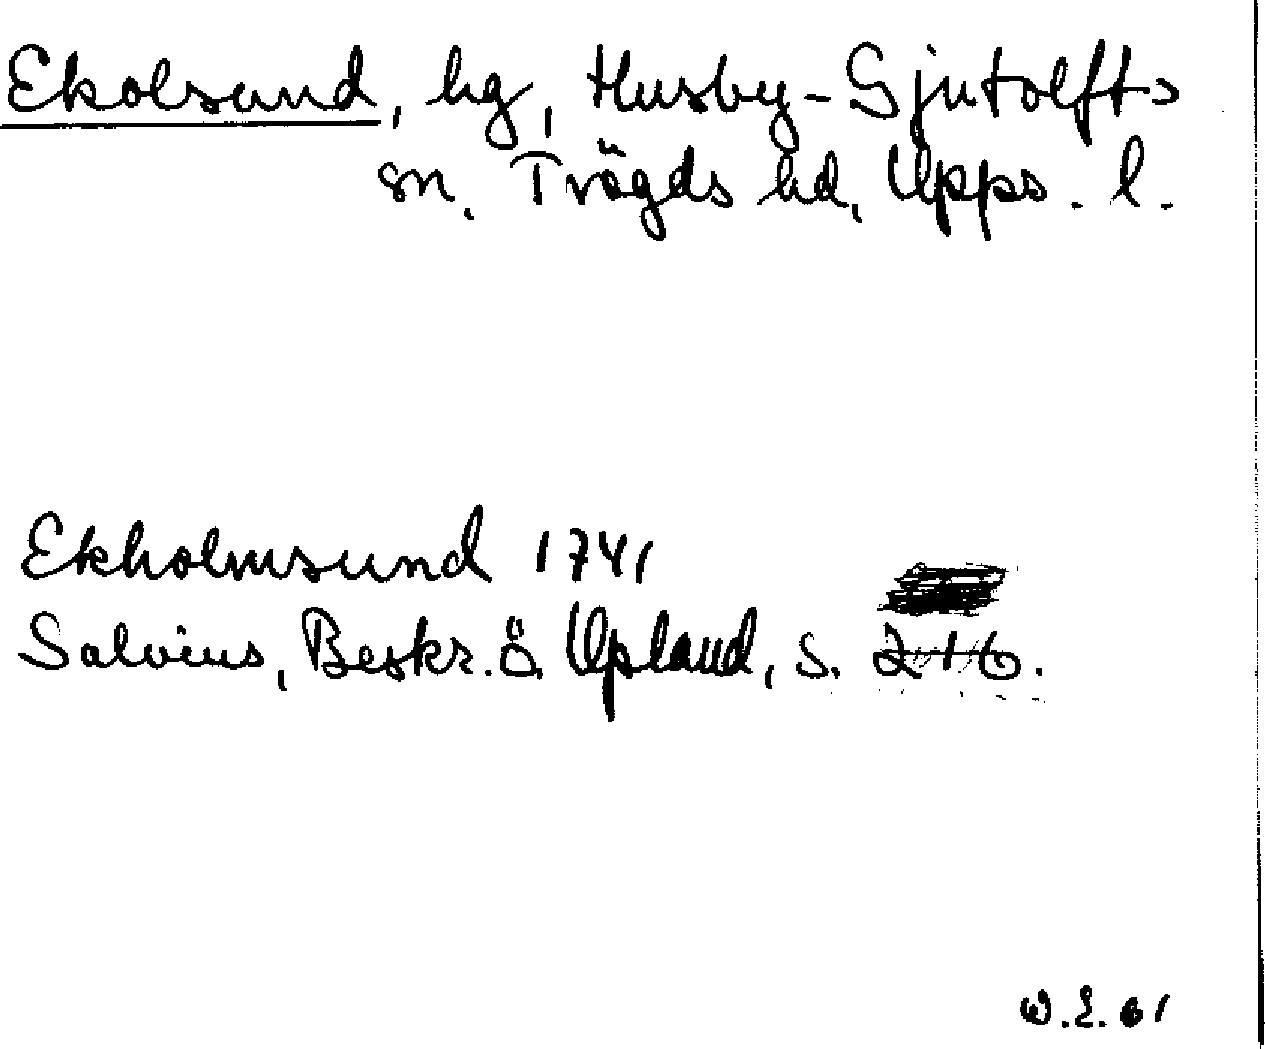 Ekolsund, hg, Husby-Sjutolfts
sn. Trögds hd, Upps. l.
Ekholmsund 1741
Salvius, Beskr. ö. Upland, s. 216.
W.E. 61